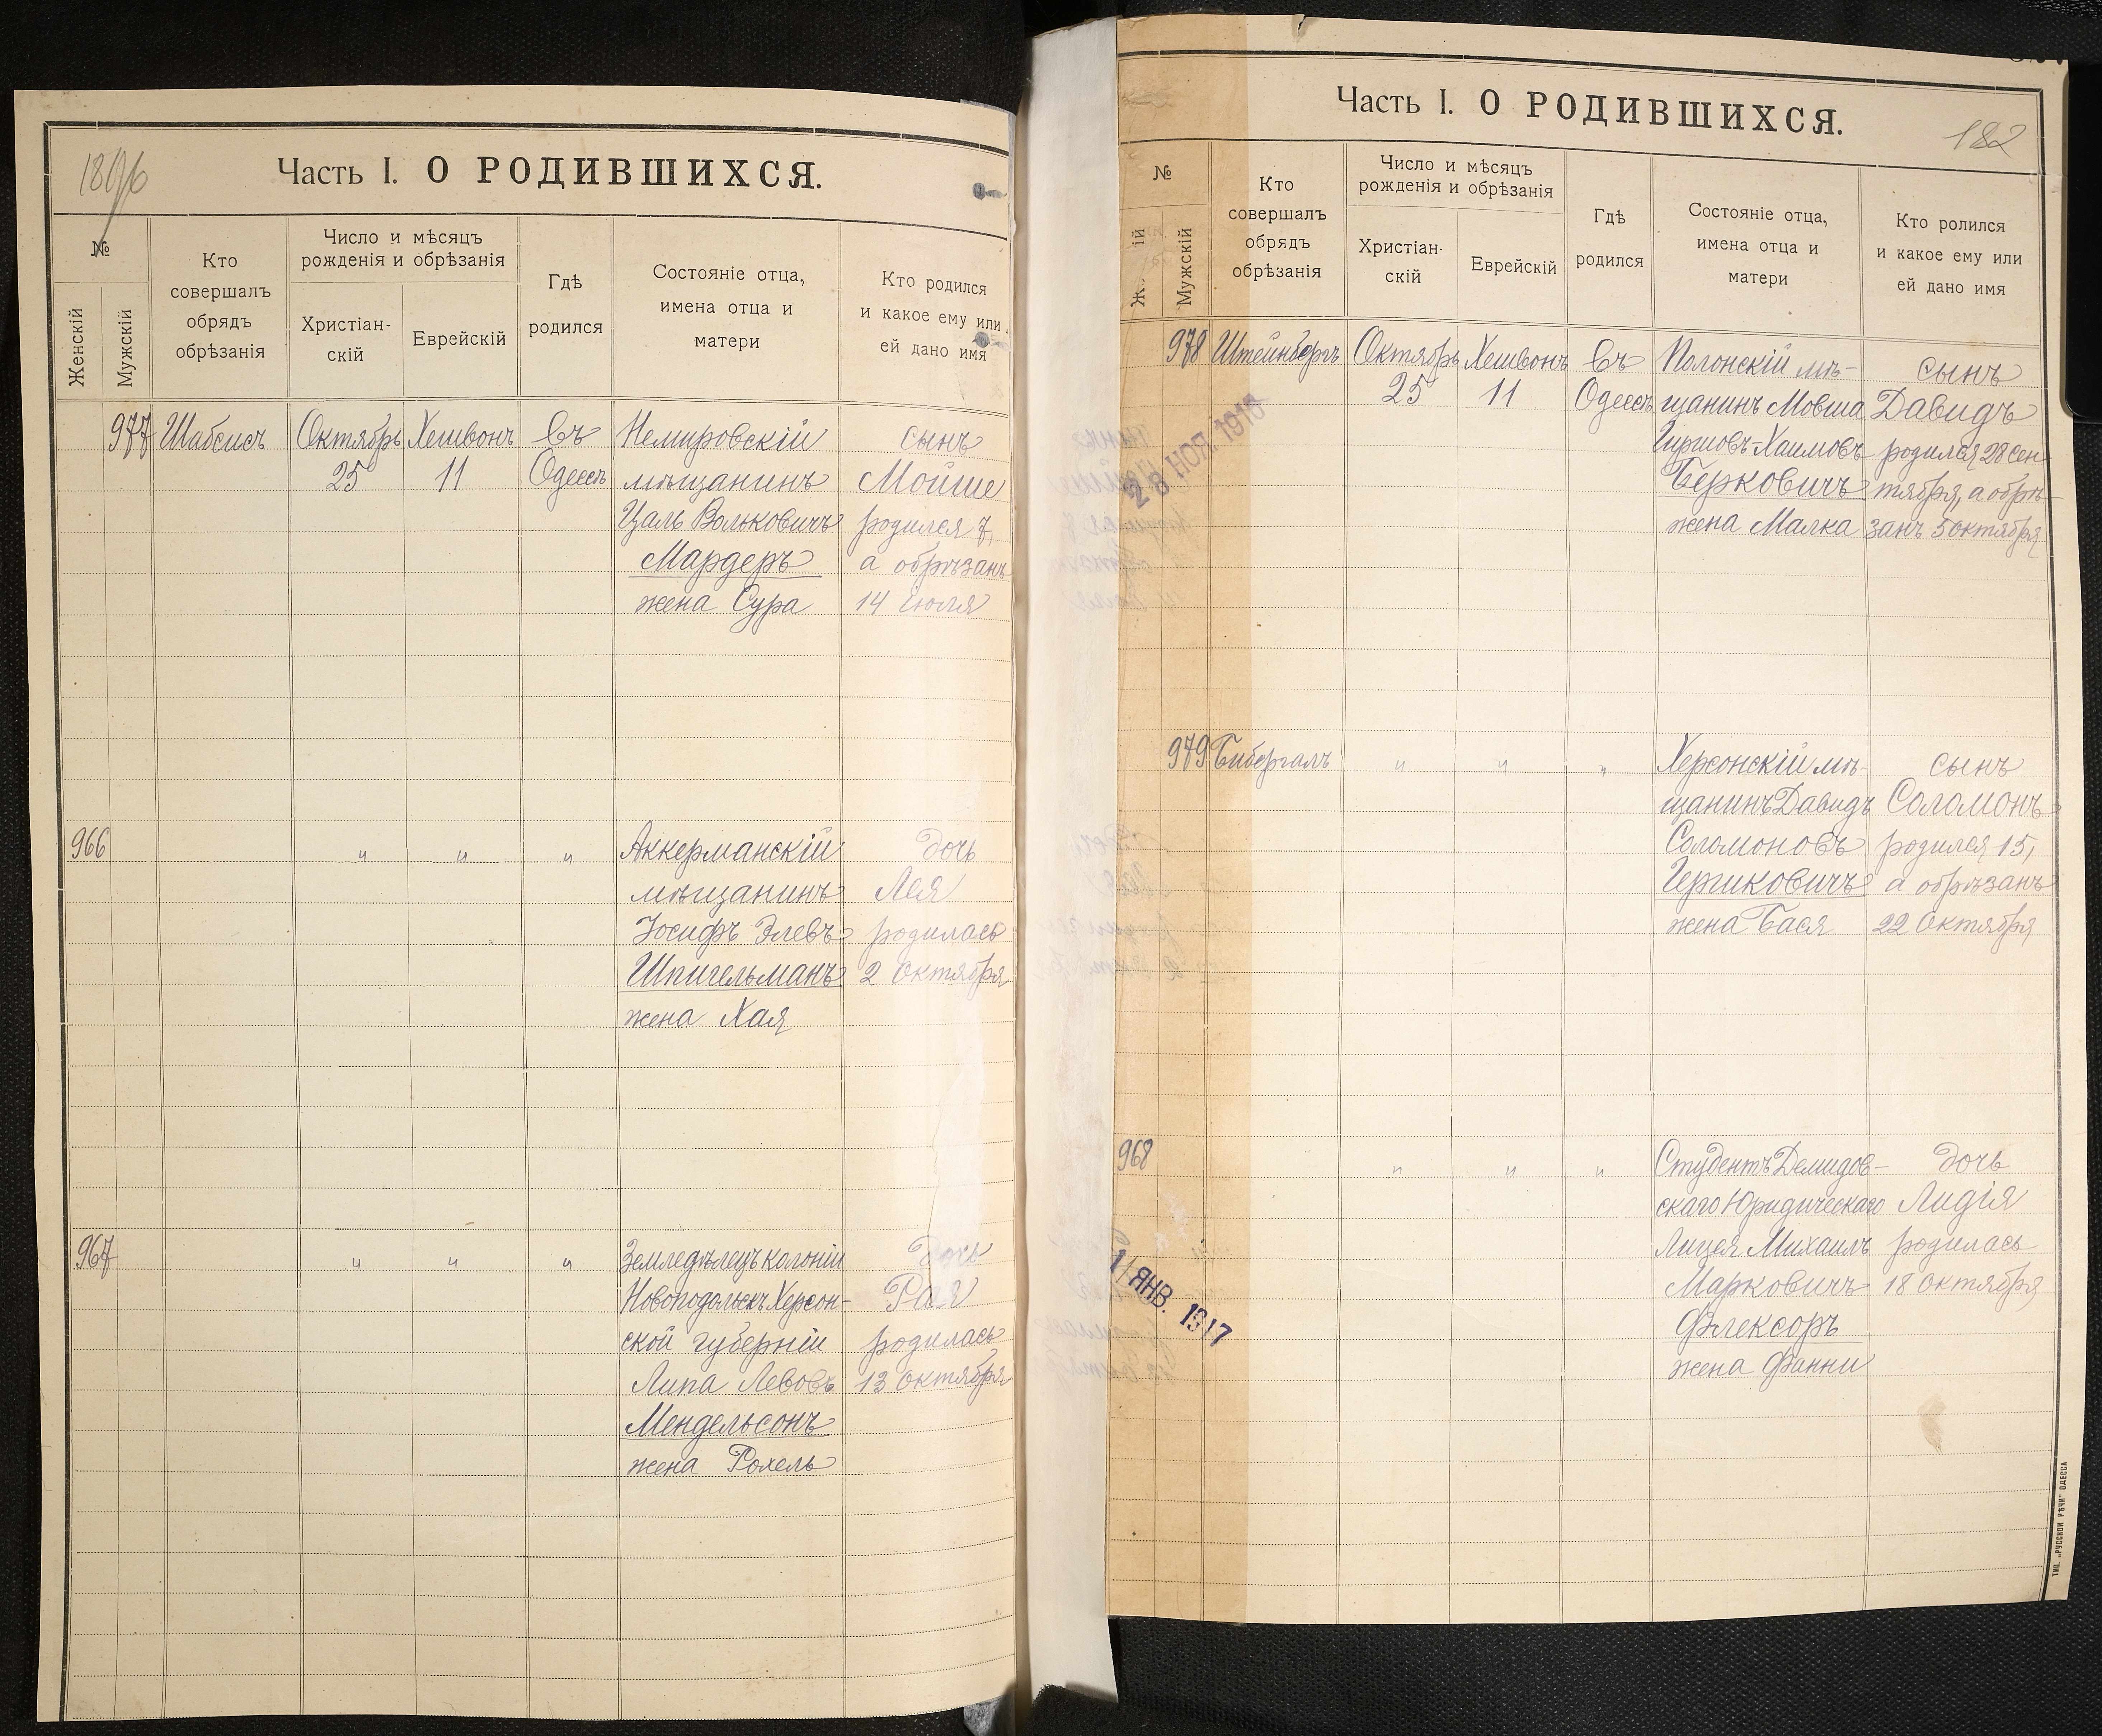 1896
Часть I. О РОДИВШИХСЯ.
№
Женскій
Мужскій
Кто
совершалъ
обрядъ
обрѣзанія
Число и мѣсяцъ
рожденія и обрѣзанія
Христіан-
скій
Еврейскій
Гдѣ
родился
Состояніе отца,
имена отца и
матери
Кто родился
и какое ему или
ей дано имя
977
Шабсисъ
Октябрь
25
Хешвонъ
11
Въ
Одессѣ
Немировскій
мѣщанинъ
Цаль Вольковичъ
Мардеръ
жена Сура
сынъ
Мойше
родился 7,
а обрѣзанъ
14 Іюля
966
"
"
"
Аккерманскій
мѣщанинъ
Іосифъ Элевъ
Шпигельманъ
жена Хая
дочь
Лея
родилась
2 Октября
967
"
"
"
Земледѣлецъ колоніи
Новоподольскъ Херсон-
ской губерніи
Липа Левовъ
Мендельсонъ
жена Рохель
дочь
Рая
родилась
13 Октября
Часть I. О РОДИВШИХСЯ.
182
№
Мужскій
Кто
совершалъ
обрядъ
обрѣзанія
Число и мѣсяцъ
рожденія и обрѣзанія
Христіан-
скій
Еврейскій
Гдѣ
родился
Состояніе отца,
имена отца и
матери
Кто ролился
и какое ему или
ей дано имя
978
Штейнбергъ
Октябрь
25
Хешвонъ
11
Въ
Одессѣ
Полонскій мѣ-
щанинъ Мовша
Гершовъ-Хаимовъ
Берковичъ
жена Малка
сынъ
Давидъ
родился 28 Сен-
тября, а обрѣ-
занъ 5 октября
28 НОЯ 1916
979
Бибергалъ
"
"
"
Херсонскій мѣ-
щанинъ Давидъ
Соломоновъ
Гершковичъ
жена Бася
сынъ
Соломонъ
родился 15,
а обрѣзанъ
22 Октября
968
"
"
"
Студентъ Демидов-
скаго Юридическаго
Лицея Михаилъ
Марковичъ
Флексоръ
жена Фанни
дочь
Лидія
родилась
18 Октября
ЯНВ. 1917
ТИП. „РУССКОЙ РѢЧИ" ОДЕССА